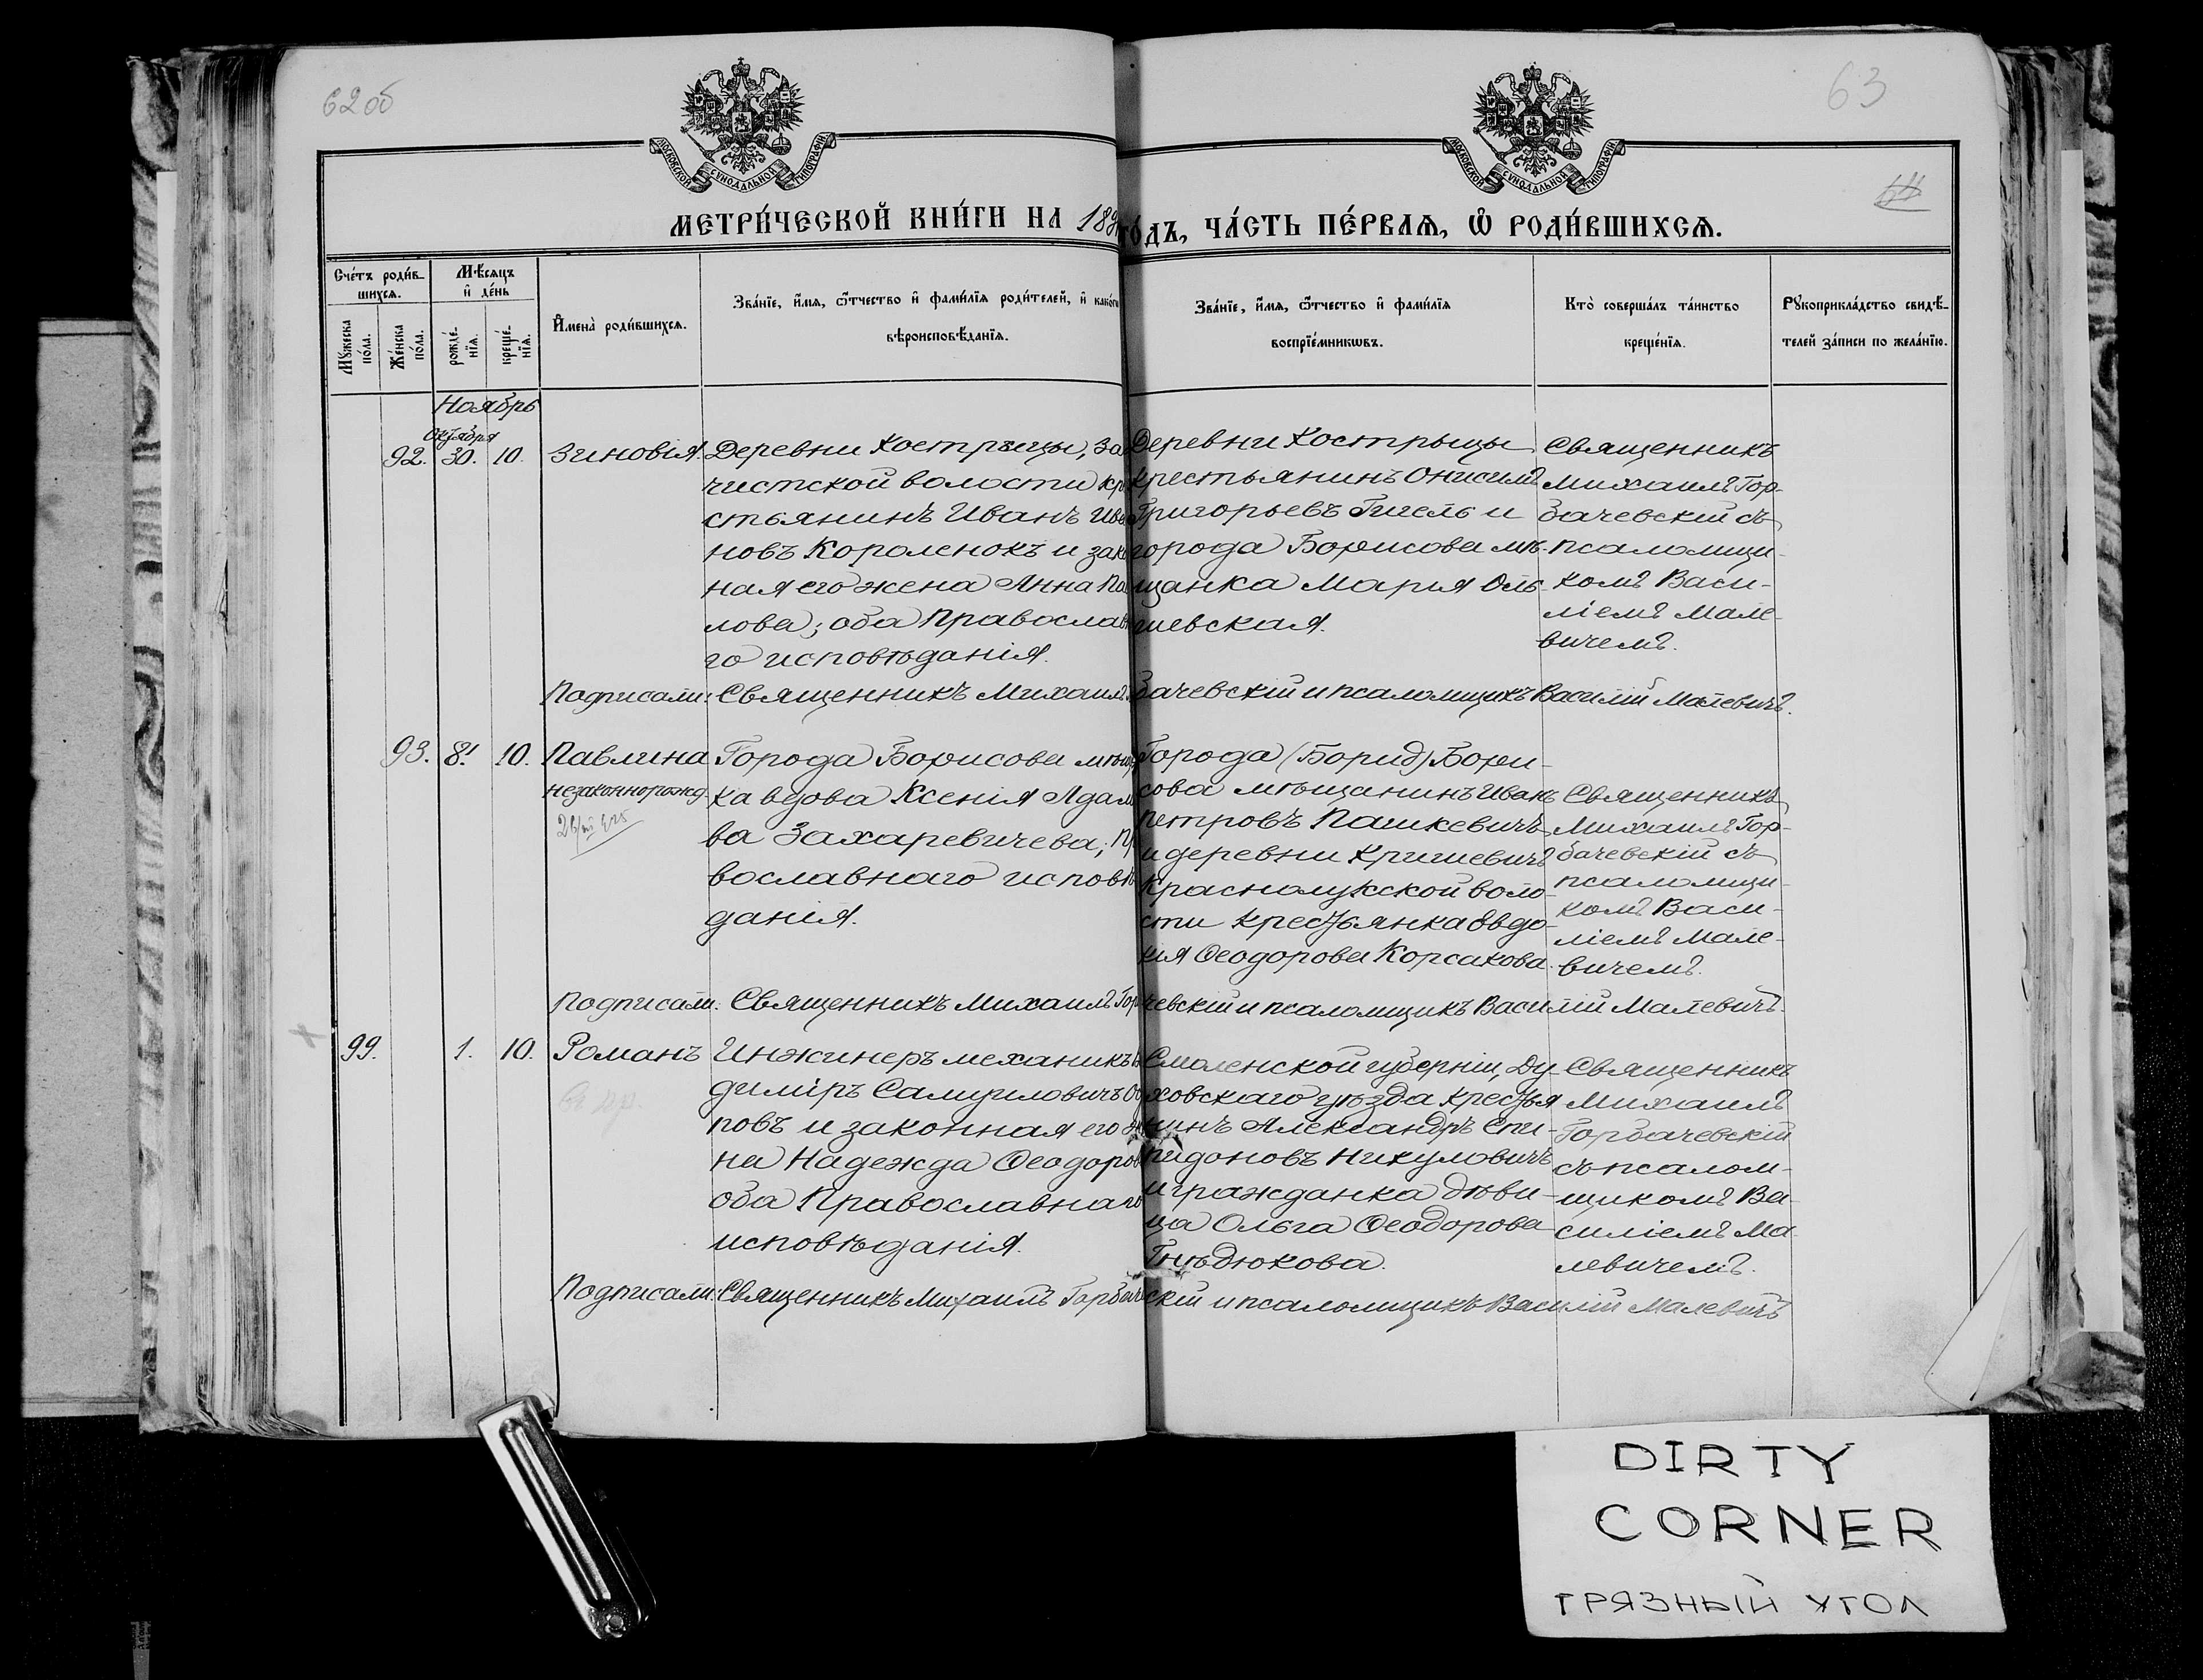 62 об
63
МОСКОВСКОЙ СѴНОДАЛЬНОЙ ТИПОГРАФІИ
МОСКОВСКОЙ СѴНОДАЛЬНОЙ ТИПОГРАФІИ
МЕТРИ́ЧЕСКОЙ КНИ́ГИ НА 189
ГО́ДЪ, ЧА́СТЬ ПЕ́РВАѦ, Ѽ РОДИ́ВШИХСѦ.
Сче́тъ роди́в-
шихсѧ.
Мꙋ́жеска
по́ла.
Же́нска
по́ла.
Мѣ́сѧцъ
и де́нь
рожде́-
нїѧ.
креще́-
нїѧ.
И҆мена̀ роди́вшихсѧ.
Зва́нїе, и҆́мѧ, ѻ҆́тчество и҆ фами́лїѧ роди́телей, и҆ како́гѡ
вѣроисповѣ́данїѧ.
Зва́нїе, и҆́мѧ, ѻ҆́тчество и҆ фами́лїѧ
воспрїе́мникѡвъ.
Кто̀ соверша́лъ та́инство
креще́нїѧ.
Рꙋкоприкла́дство свидѣ́-
телей за́писи по жела́нїю.
Ноябрь
Октября
92. 30. 10. Зиновія.
Деревни Кострицы, За
чистской волости кр
стьянинъ Иванъ Ива
новъ Короленокъ и зако
ная его жена Анна Па
лова; оба Православн
го исповѣданія.
Деревни Кострыцы
крестьянинъ Онисимъ
Григорьевъ Гигель и
города Борисова мѣ-
щанка Марія Оль-
шевская.
Священникъ
Михаилъ Гор-
бачевскій съ
псаломщи-
комъ Васи-
ліемъ Мале-
вичемъ.
Подписали: Священникъ Михаилъ бачевскій и псаломщикъ Василій Малевичъ.
93. 8. 10. Павлина
незаконнорожд.
Города Борисова мѣщ
ка вдова Ксенія Адам
ва Захаревичева; Пр
вославнаго исповѣ
данія.
Города (Борид) Бори-
сова мѣщанинъ Иванъ
Петровъ Пашкевичъ
и деревни Кришевичъ
Краснолужской воло-
сти крестьянка Евдо-
кія Ѳеодорова Корсакова.
Священникъ
Михаилъ Гор-
бачевскій съ
псаломщи-
комъ Васи-
ліемъ Мале-
вичемъ.
Подписали: Священникъ Михаилъ Гор чевскій и псаломщикъ Василій Малевичъ.
99. 1. 10. Романъ
Инжинеръ механикъ
димiръ Самуиловичъ
повъ и законная его ж
на Надежда Ѳеодоров
оба Православнаго
исповѣданія.
Смоленской губерніи, Ду-
ховскаго уѣзда крестья
нинъ Александръ Спи-
ридоновъ Никуловичъ
и гражданка дѣви-
ца Ольга Ѳеодорова
Гнѣдюкова.
Священникъ
Михаилъ
Горбачевскій
съ псалом-
щикомъ Ва-
силіемъ Ма
левичемъ.
Подписали: Священникъ Михаилъ Горбаче скій и псаломщикъ Василій Малевичъ
DIRTY
CORNER
ГРЯЗНЫЙ УГОЛ